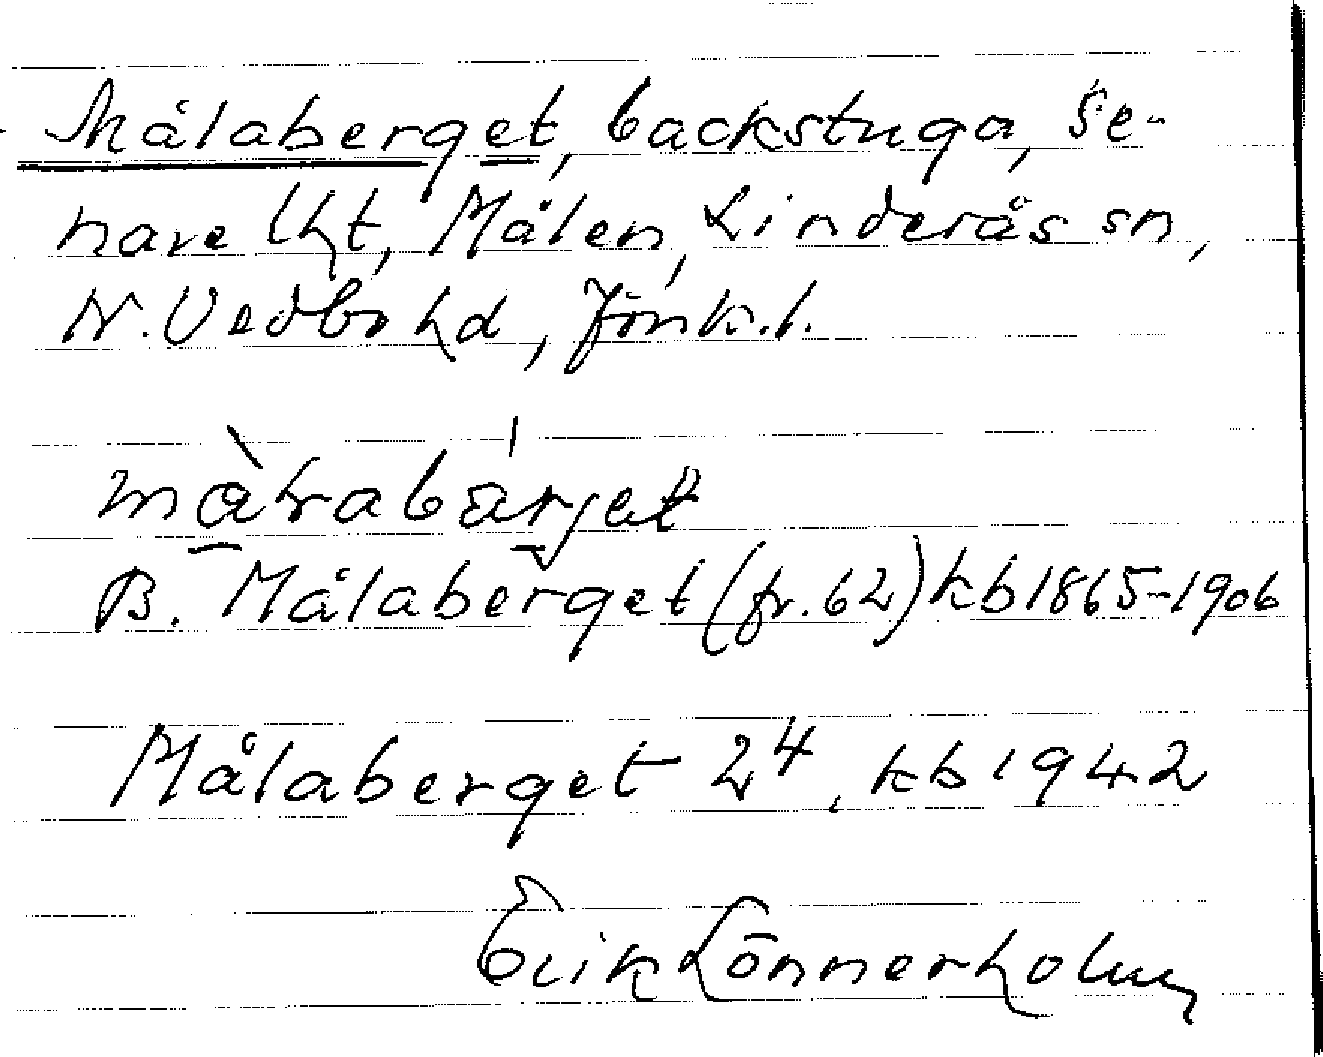 Målaberget, backstuga, se-
nare lht, Målen, Linderås sn,
N. Vedbo hd, Jönk. l.
måVrabärjet
B. Målaberget (fr. 62) kb 1865-1906
Målaberget 2⁴, kb 1942
Erik Lönnerholm